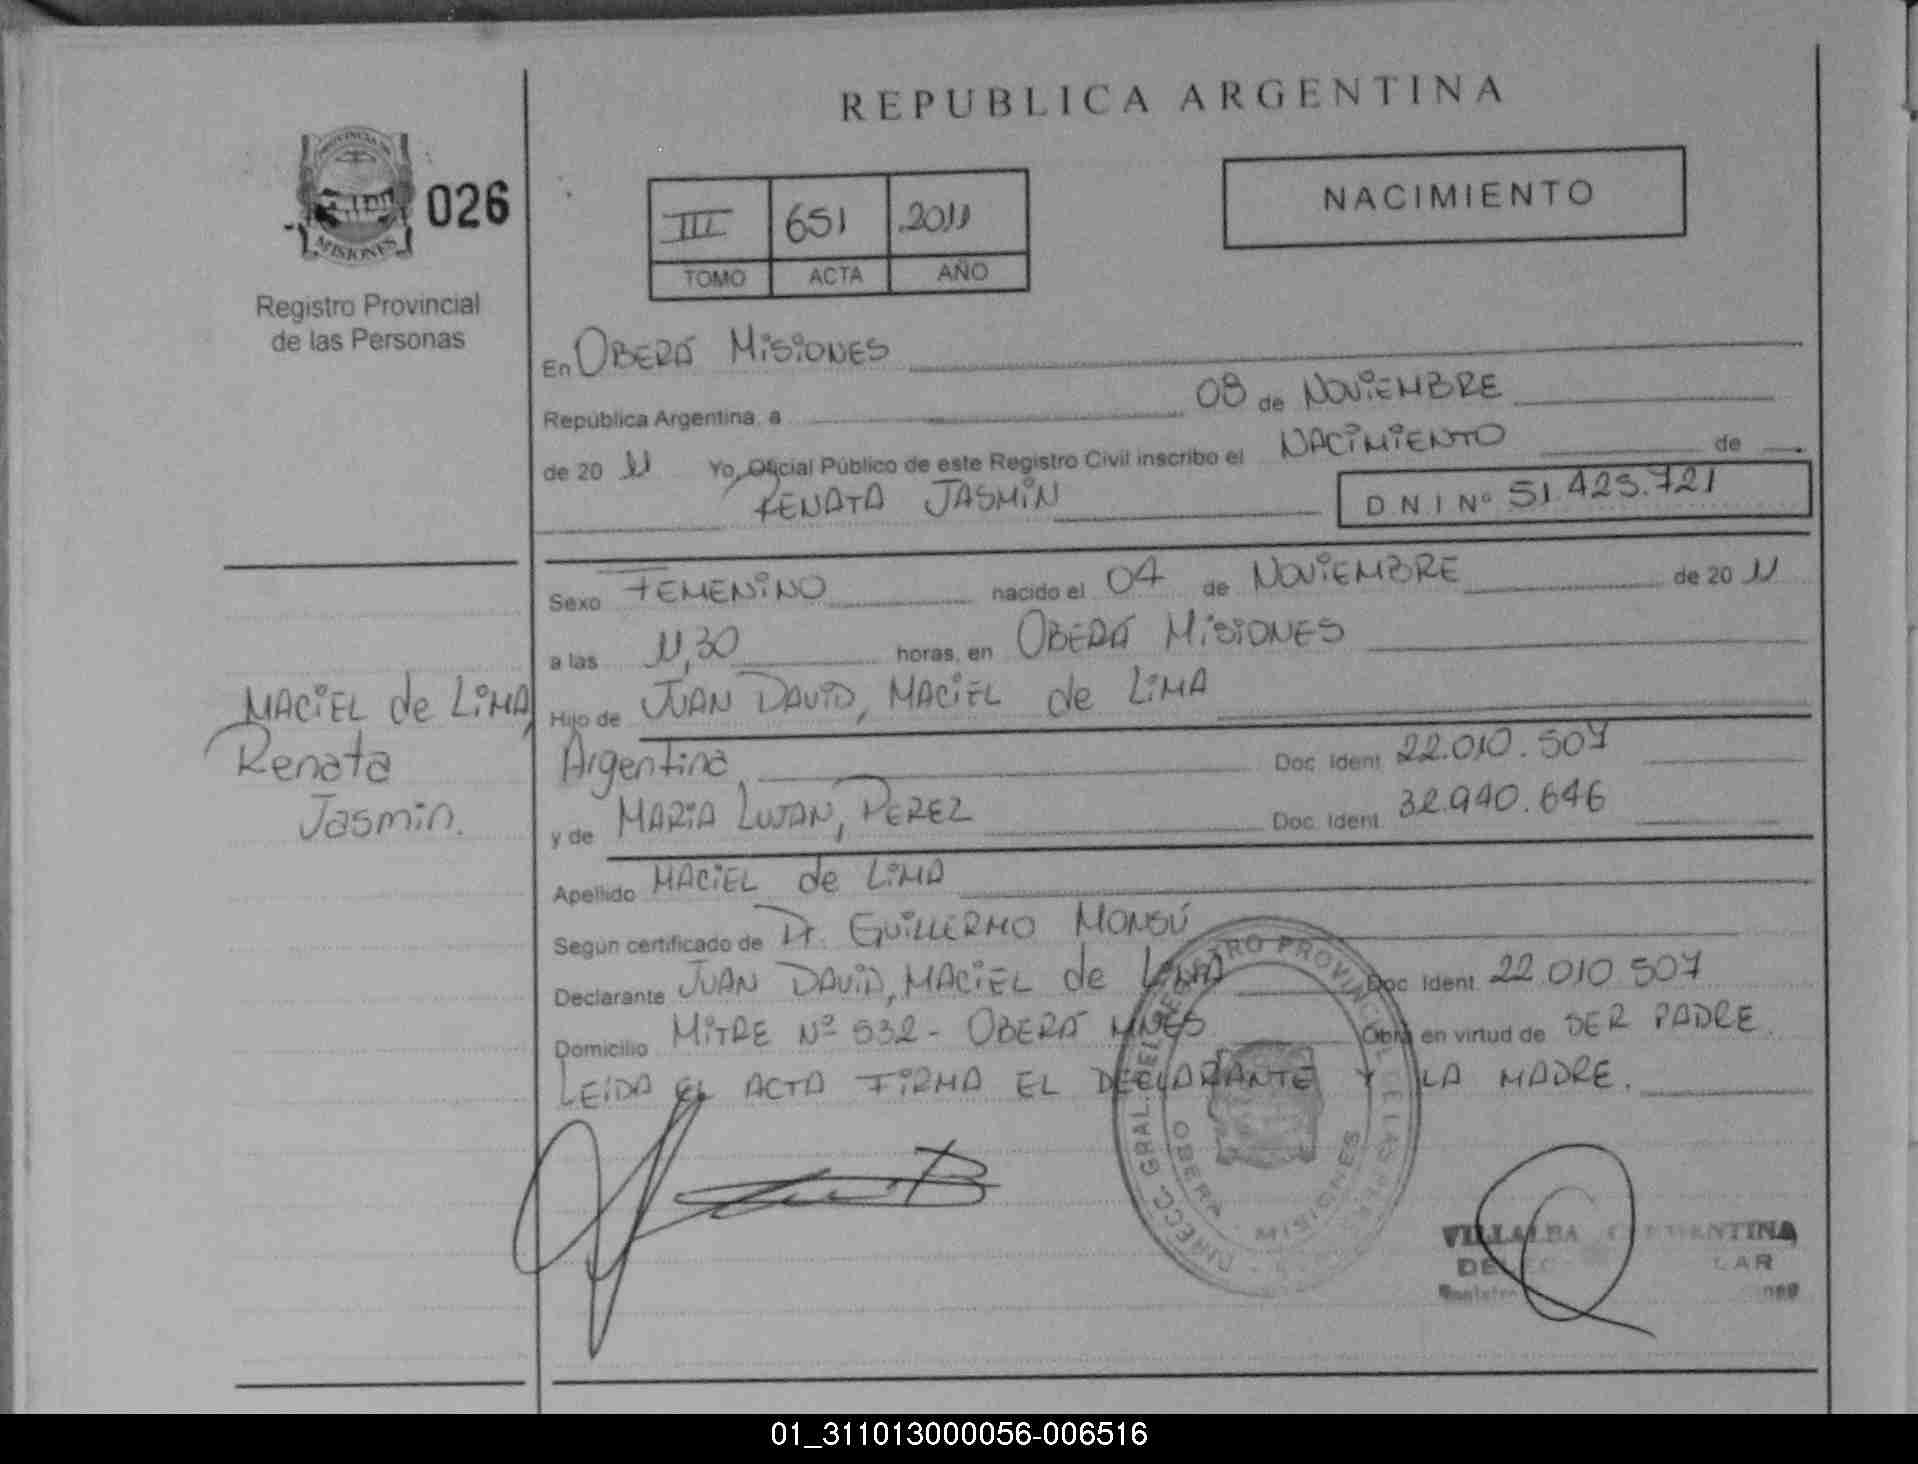 REPUBLICA ARGENTINA
PROVINCIA DE
MISIONES
026
Registro Provincial
de las Personas
III 651 2011
TOMO ACTA AÑO
NACIMIENTO
En OBERÁ MISIONES
República Argentina, a 08 de NOVIEMBRE
de 20 11 Yo, Oficial Público de este Registro Civil inscribo el NACIMIENTO de
RENATA JASMIN
D N I Nº 51.423.721
Sexo FEMENINO nacido el 04 de NOVIEMBRE de 20 11
a las 11,30 horas, en OBERÁ MISIONES
MACIEL de LIMA,
Renata
Jasmin.
Hijo de JUAN DAVID, MACIEL de LIMA
Argentina Doc. Ident. 22.010.507
y de MARIA LUJAN, PEREZ Doc. Ident. 32.940.646
Apellido MACIEL de LIMA
Según certificado de Dr. GUILLERMO MONSÚ
Declarante JUAN DAVID, MACIEL de LIMA Doc. Ident. 22 010 507
Domicilio MITRE Nº 532 - OBERÁ MNES Obra en virtud de SER PADRE.
LEIDA EL ACTA FIRMA EL DECLARANTE Y LA MADRE.
DIRECC. GRAL. DEL REGISTRO PROVINCIAL DE LAS PERS.
OBERA - MISIONES
VILLALBA
01_311013000056-006516